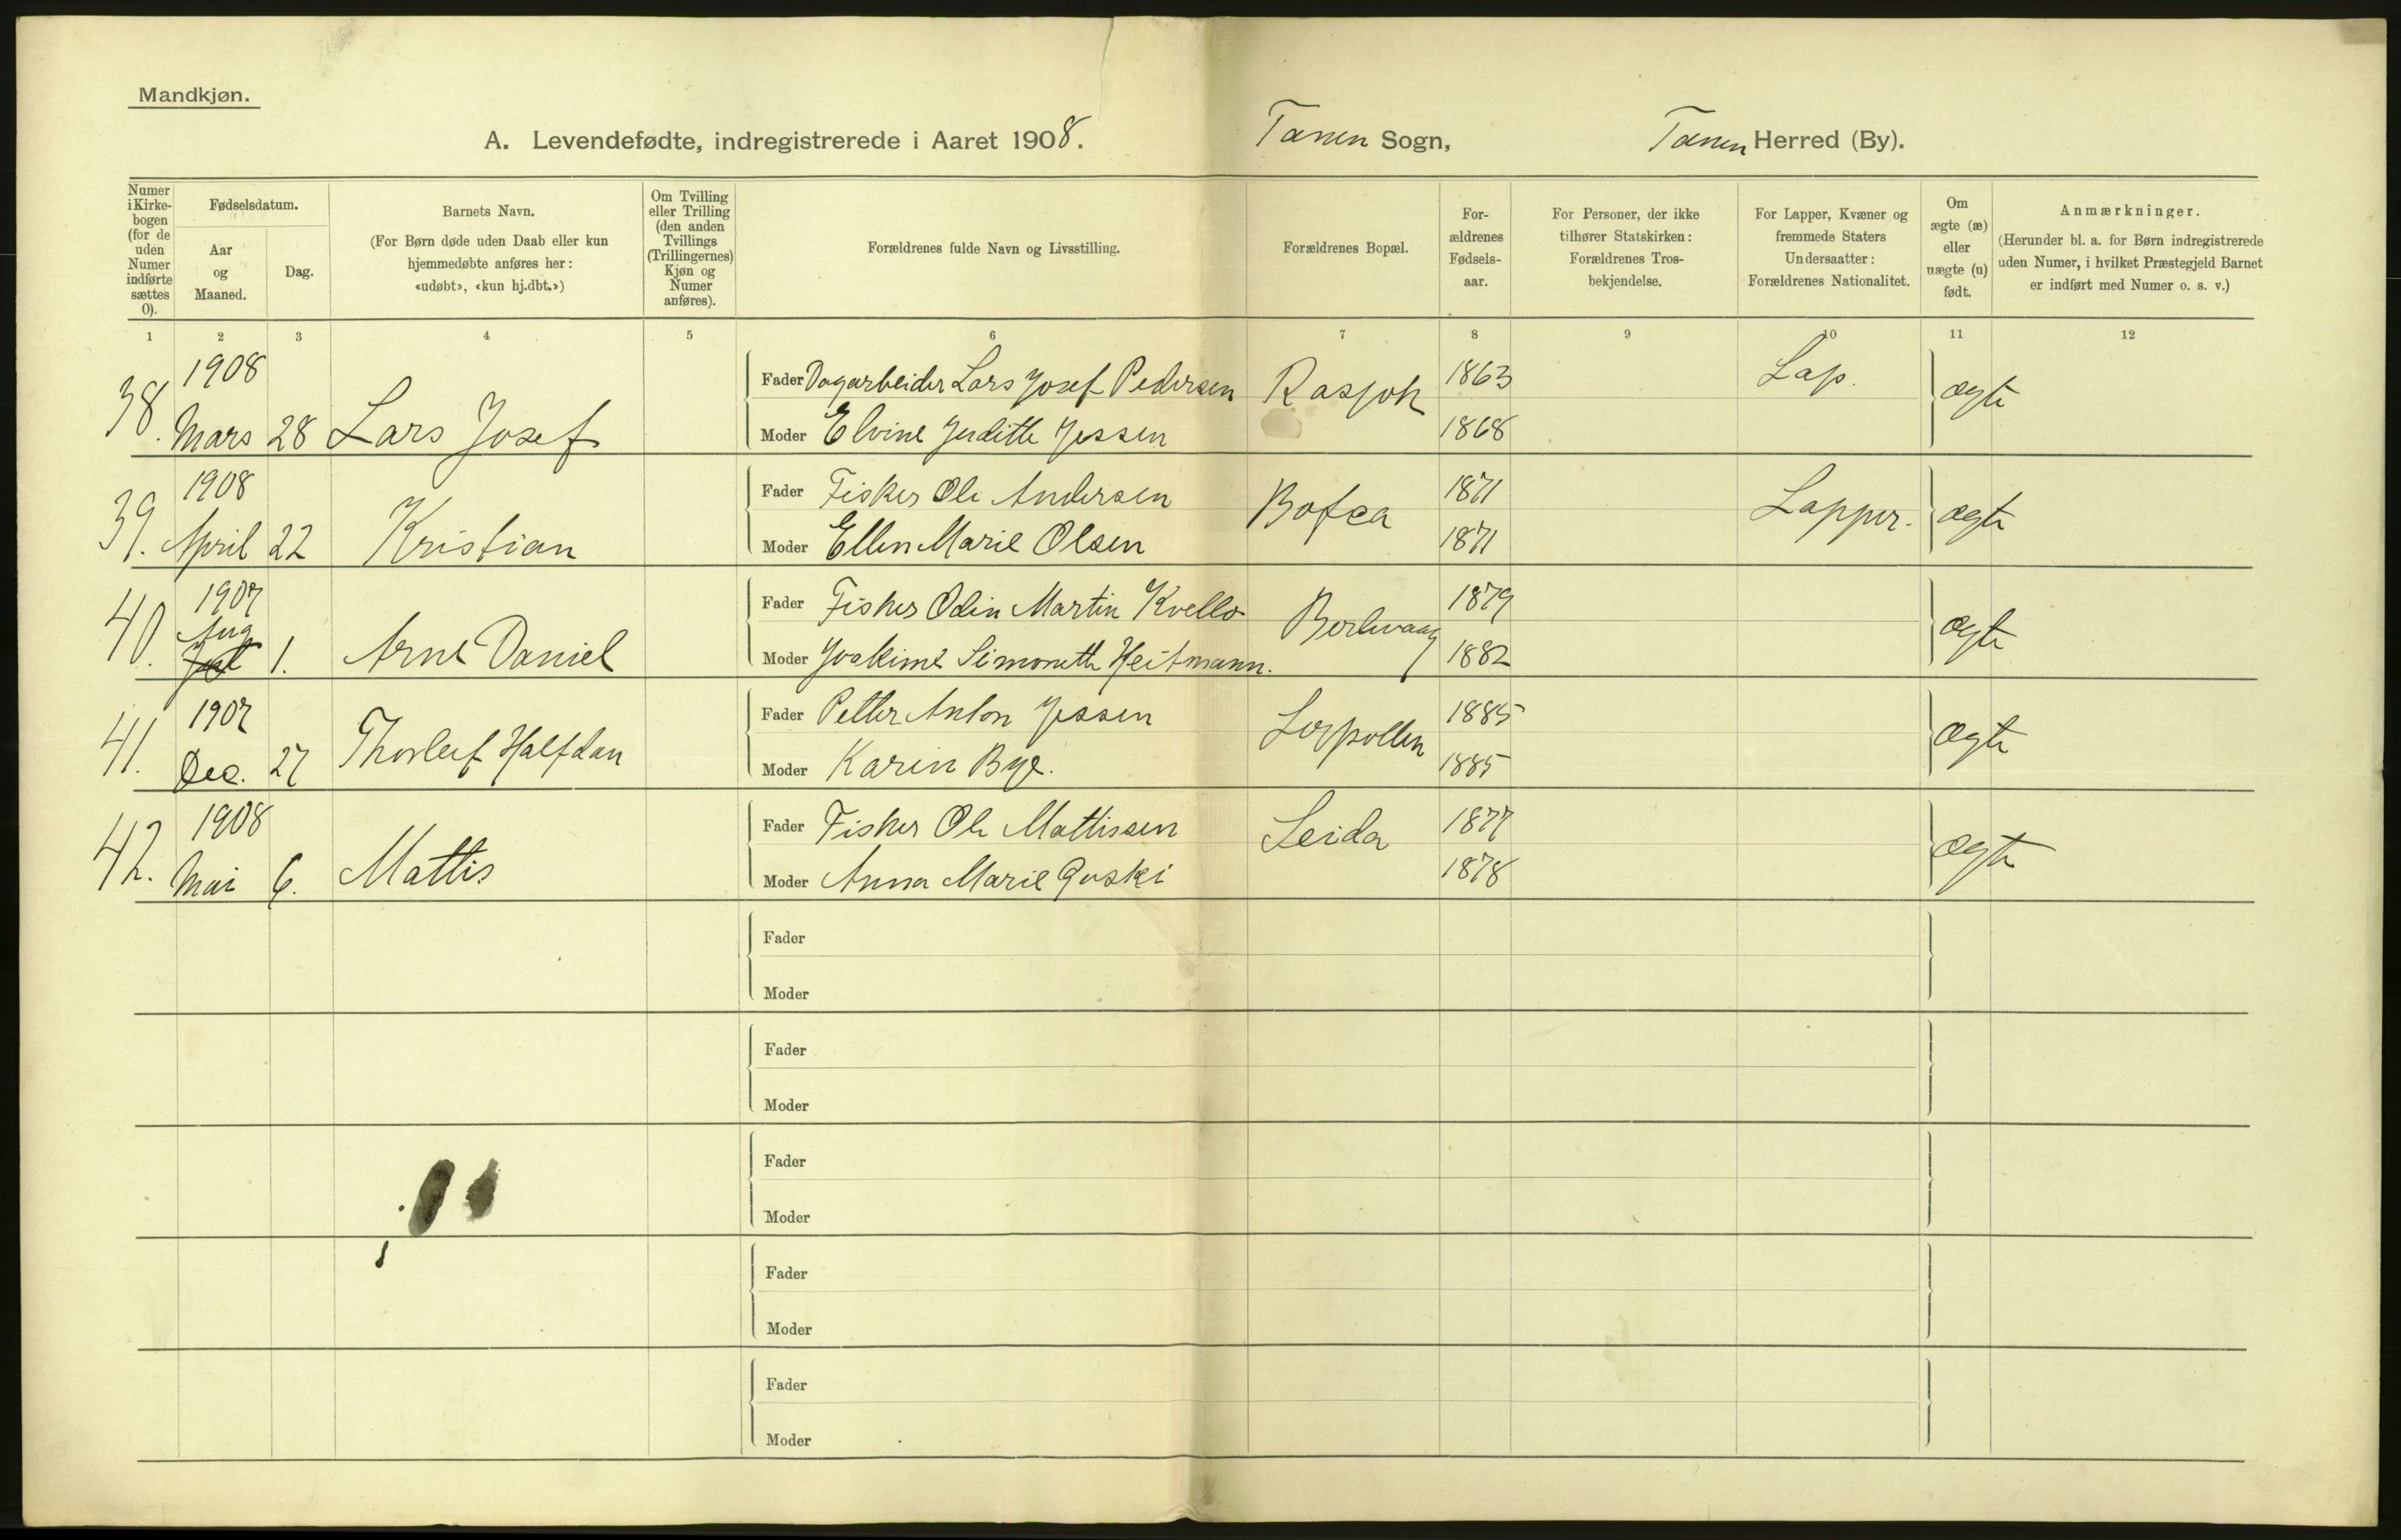 Mandkjøn.
A. Levendefødte, indregistrerede i Aaret 1908. Tanen Sogn, Tanen Herred (By).
Numer i Kirkebogen (for de uden Numer indførte sættes 0).
Fødselsdatum.
Aar og Maaned.
Dag.
Barnets Navn.
(For Børn døde uden Daab eller kun
hjemmedøbte anføres her:
«udøbt», «kun hj.dbt.»)
Om Tvilling
eller Trilling
(den anden
Tvillings
(Trillingernes)
Kjøn og
Numer
anføres).
Forældrenes fulde Navn og Livsstilling.
Forældrenes Bopæl.
For-
ældrenes
Fødsels-
aar.
For Personer, der ikke
tilhører Statskirken:
Forældrenes Tros-
bekjendelse.
For Lapper, Kvæner og
fremmede Staters
Undersaatter:
Forældrenes Nationalitet.
Om
ægte (æ)
eller
uægte (u)
født.
Anmærkninger.
(Herunder bl. a. for Børn indregistrerede
uden Numer, i hvilket Præstegjeld Barnet
er indført med Numer o. s. v.)
1 2 3 4 5 6 7 8 9 10 11 12
1908 Fader Dagarbeider Lars Josef Pedersen Rasjok 1863 Lap. ægte
38. Mars 28 Lars Josef Moder Elvine Juditte Jessen 1868
1908 Fader Fisker Ole Andersen Bofca 1871 Lapper. ægte
39. April 22 Kristian Moder Ellen Marie Olsen 1871
1907 Fader Fisker Odin Martin Kvello Berlevaag 1879 ægte
40. Aug 1. Arne Daniel Moder Joakime Simonette Heitmann. 1882
1907 Fader Petter Anton Jessen Leppollen 1885 ægte
41. Dec. 27 Thorleif Halfdan Moder Karin Bye. 1885
1908 Fader Fisker Ole Mattissen Seida 1877 ægte
42. Mai 6. Mattis Moder Anna Marie Guski 1878
Fader
Moder
Fader
Moder
Fader
Moder
Fader
Moder
Fader
Moder